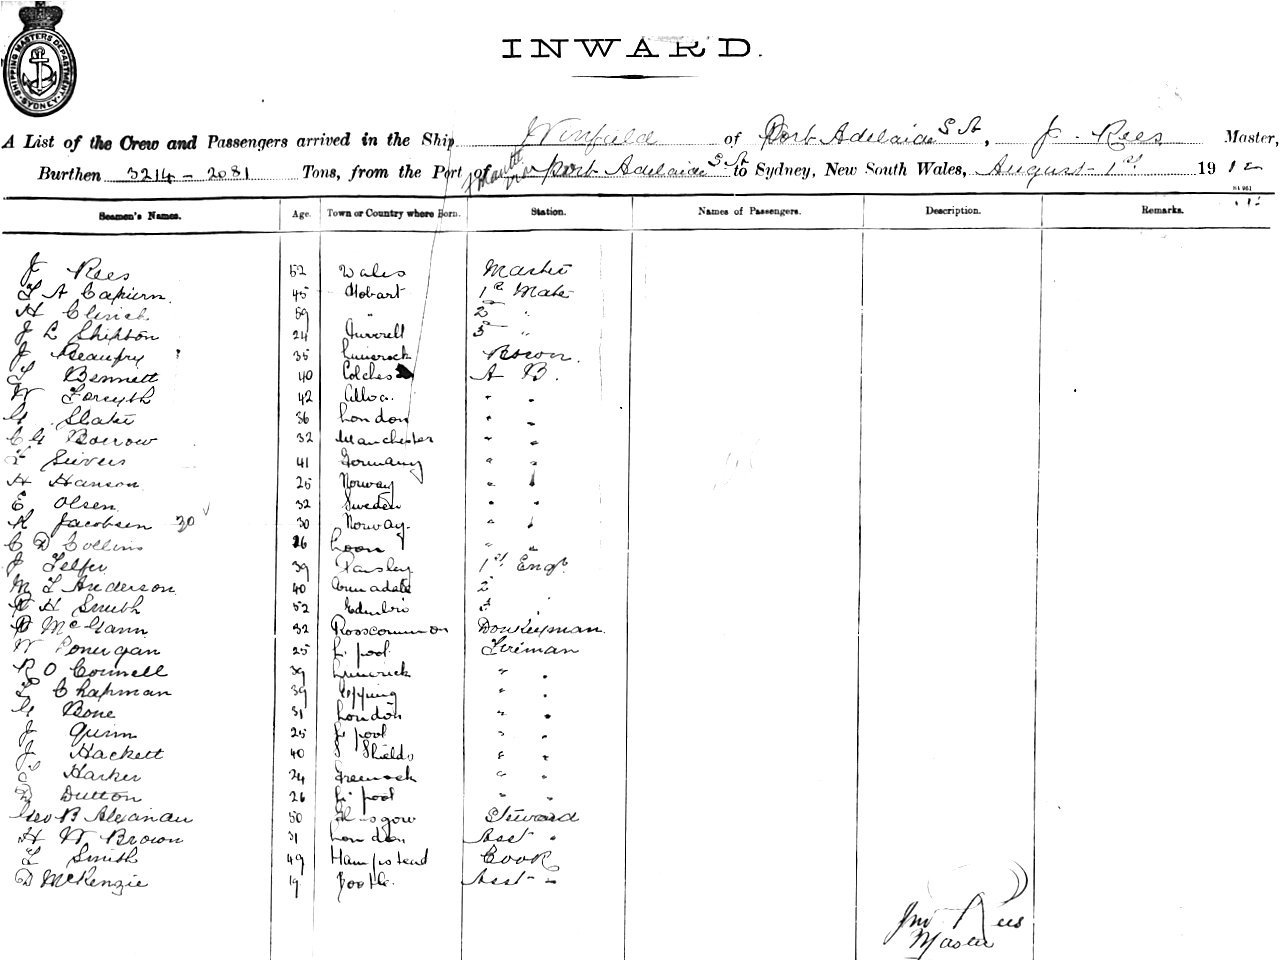 SHIPPING MASTERS DEPARTMENT SYDNEY
INWARD.
A List of the Crew and Passengers arrived in the Ship Winfield of Port Adelaide S A, J. Rees Master,
Burthen 3214 - 2081 Tons, from the Port of Port Adelaide S A to Sydney, New South Wales, August 1st 1912
Seamen's Names. Age. Town or Country where Born. Station. Names of Passengers. Description. Remarks.
J Rees 52 Wales Master
45 Hobart 1st Mate
H 59 " 2 "
J L Shipton 24 Inverell 3 "
J 35 Limerick Bosun.
T Bennett 40 Colches A B.
W Forsyth 42 Alloa. " "
G Slater 36 London " "
C G Borrow 32 Manchester " "
Sievers 41 Germany " "
H Hanson 25 Norway " "
E Olsen 32 Sweden " "
K Jacobsen 30 30 Norway. " "
C D Collins 26 " "
J Telfer 39 Paisley 1st Engr.
M T Anderson 40 Armadale 2 "
H Smith 52 Edinbro 3 "
P McGann 32 Rosscommon Donkeyman
W 25 L'pool Fireman
R O Connell 39 Limerick " "
T Chapman 39 Epping " "
G Bone 31 London " "
J Quinn 25 L'pool " "
J Hackett 40 S Shields " "
Harker 24 Greenock " "
D Dutton 26 L'pool " "
Geo B Alexander 50 Glasgow Steward
H W Brown 31 London Asst "
T Smith 49 Hampstead Cook
D McKenzie 19 Bootle. Asst "
Jno Rees
Master